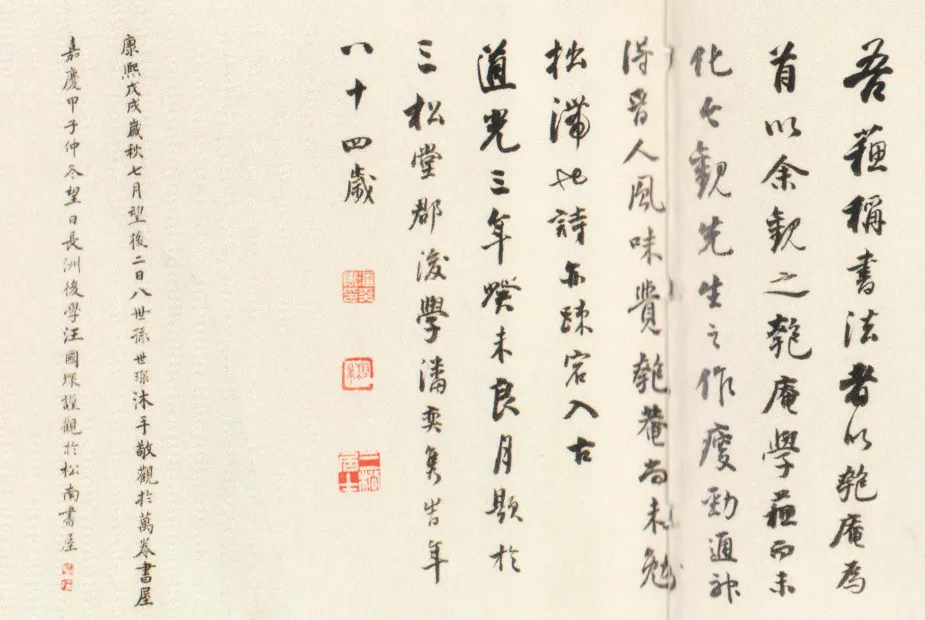 吾蘓稱書法者以匏庵為
首以余觀之匏庵學蘓而未
化也觀先生之作瘦勁通神
得晉人風味覺匏菴尚未勉
拙滯也詩亦疎宕入古
道光三年癸未良月題於
三松堂郡後學潘奕雋時年
八十四歲
康熙戊戌歲秋七月望後二日八世孫世琛沐手敬觀於萬卷書屋
嘉慶甲子仲冬望日長洲後學汪國琛謹觀於松南書屋